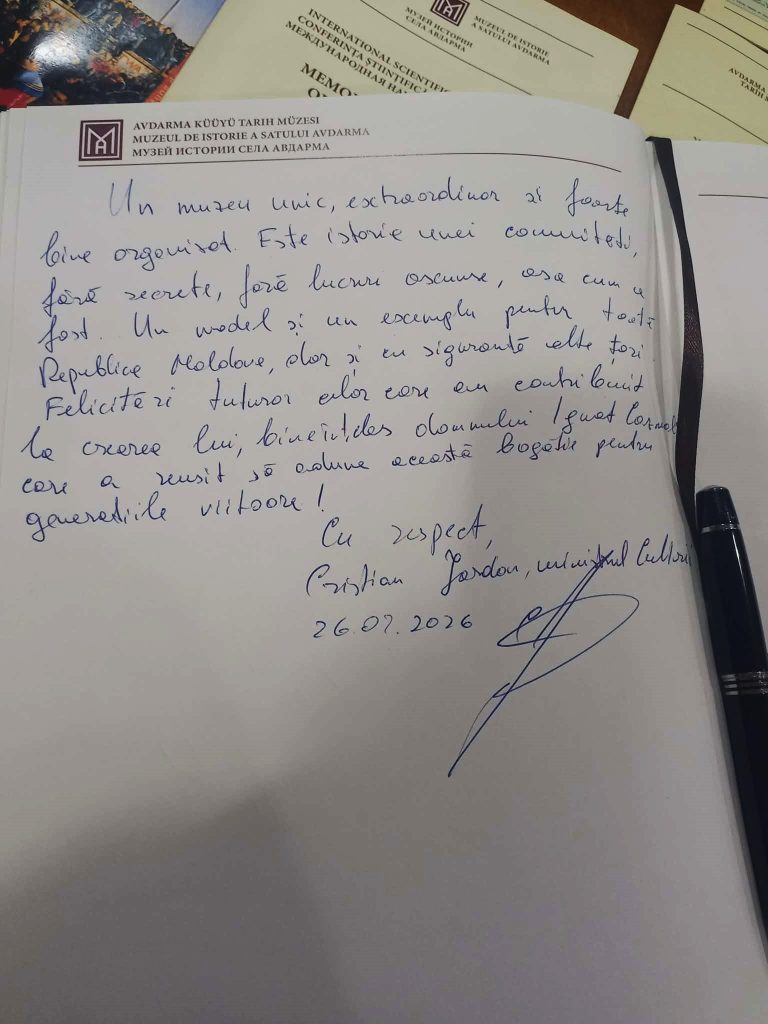 МУЗЕЙ ИСТОРИИ
СЕЛА АВДАРМА
MUZEUL DE ISTORIE
A SATULUI AVDARMA
INTERNATIONAL SCIENTIFIC
CONFERINȚA ȘTIINȚIFICĂ
МЕЖДУНАРОДНАЯ
AVDARMA
AVDARMA KÜÜYÜ TARIH MÜZESI
MUZEUL DE ISTORIE A SATULUI AVDARMA
МУЗЕЙ ИСТОРИИ СЕЛА АВДАРМА
Un muzeu unic, extraordinar și foarte
bine organisat. Este istorie unei comunități,
fără secrete, fără lucruri ascunse, asa cum a
fost. Un model și un exemplu pentru toată
Republica Moldova, dar și cu siguranță alte țări.
Felicitări tuturor celor care au contribuit
la crearea lui, bineînțeles domnului Ignat Cazmalî
care a reusit să adune această bogăție pentru
generațiile viitoare!
Cu respect,
Cristian Jardan, ministrul Culturii
26.02.2026